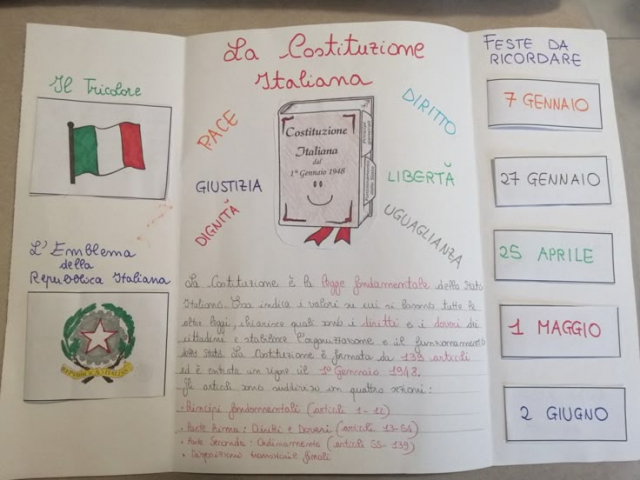 Il Tricolore
L'Emblema
della
Repubblica Italiana
REPVBBLICA ITALIANA
La Costituzione
Italiana
PACE
GIUSTIZIA
DIGNITÀ
DIRITTO
LIBERTÀ
UGUAGLIANZA
Costituzione
Italiana
dal
1° Gennaio 1948
La Costituzione è la legge fondamentale dello Stato
Italiano. Essa indica i valori su cui si basano tutte le
altre leggi, chiarisce quali sono i diritti e i doveri dei
cittadini e stabilisce l'organizzazione e il funzionamento
dello Stato. La Costituzione è formata da 139 articoli
ed è entrata in vigore il 1° Gennaio 1948.
Gli articoli sono suddivisi in quattro sezioni:
• Principi fondamentali (articoli 1-12)
• Parte Prima: Diritti e Doveri (articoli 13-54)
• Parte Seconda: Ordinamento (articoli 55-139)
• Disposizioni transitorie finali
FESTE DA
RICORDARE
7 GENNAIO
27 GENNAIO
25 APRILE
1 MAGGIO
2 GIUGNO